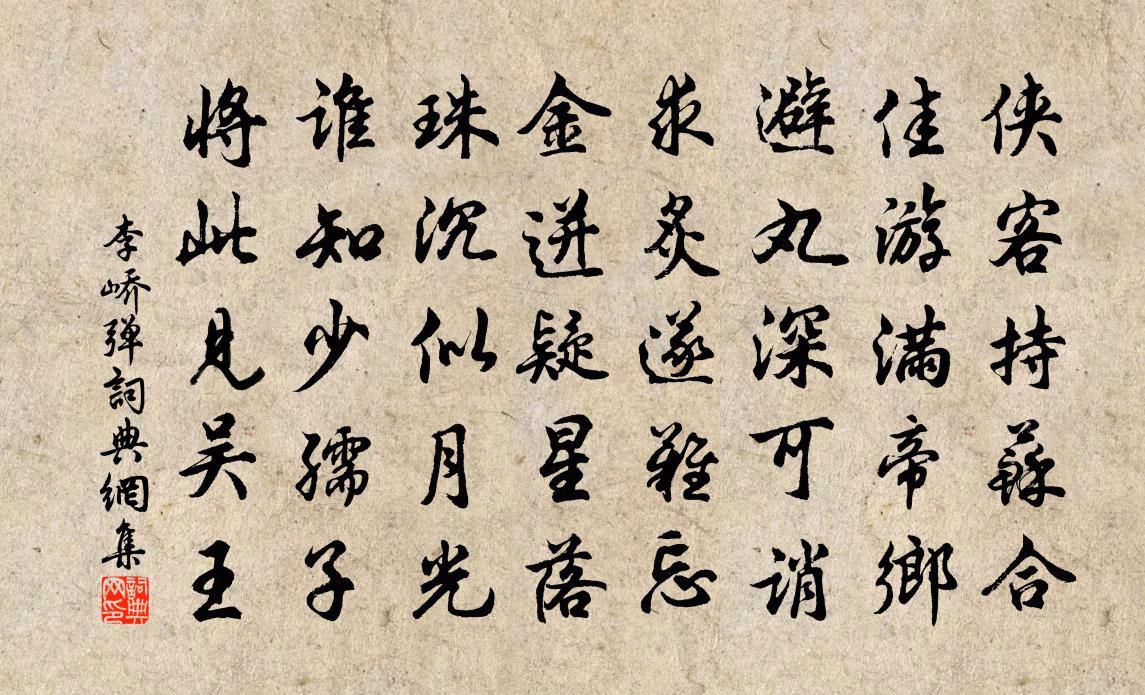 侠客持蘇合
佳游滿帝鄉
避丸深可诮
求炙遂難忘
金迸疑星落
珠沉似月光
谁知少孺子
将此見吴王
李峤弹詞典網集
詞典网印